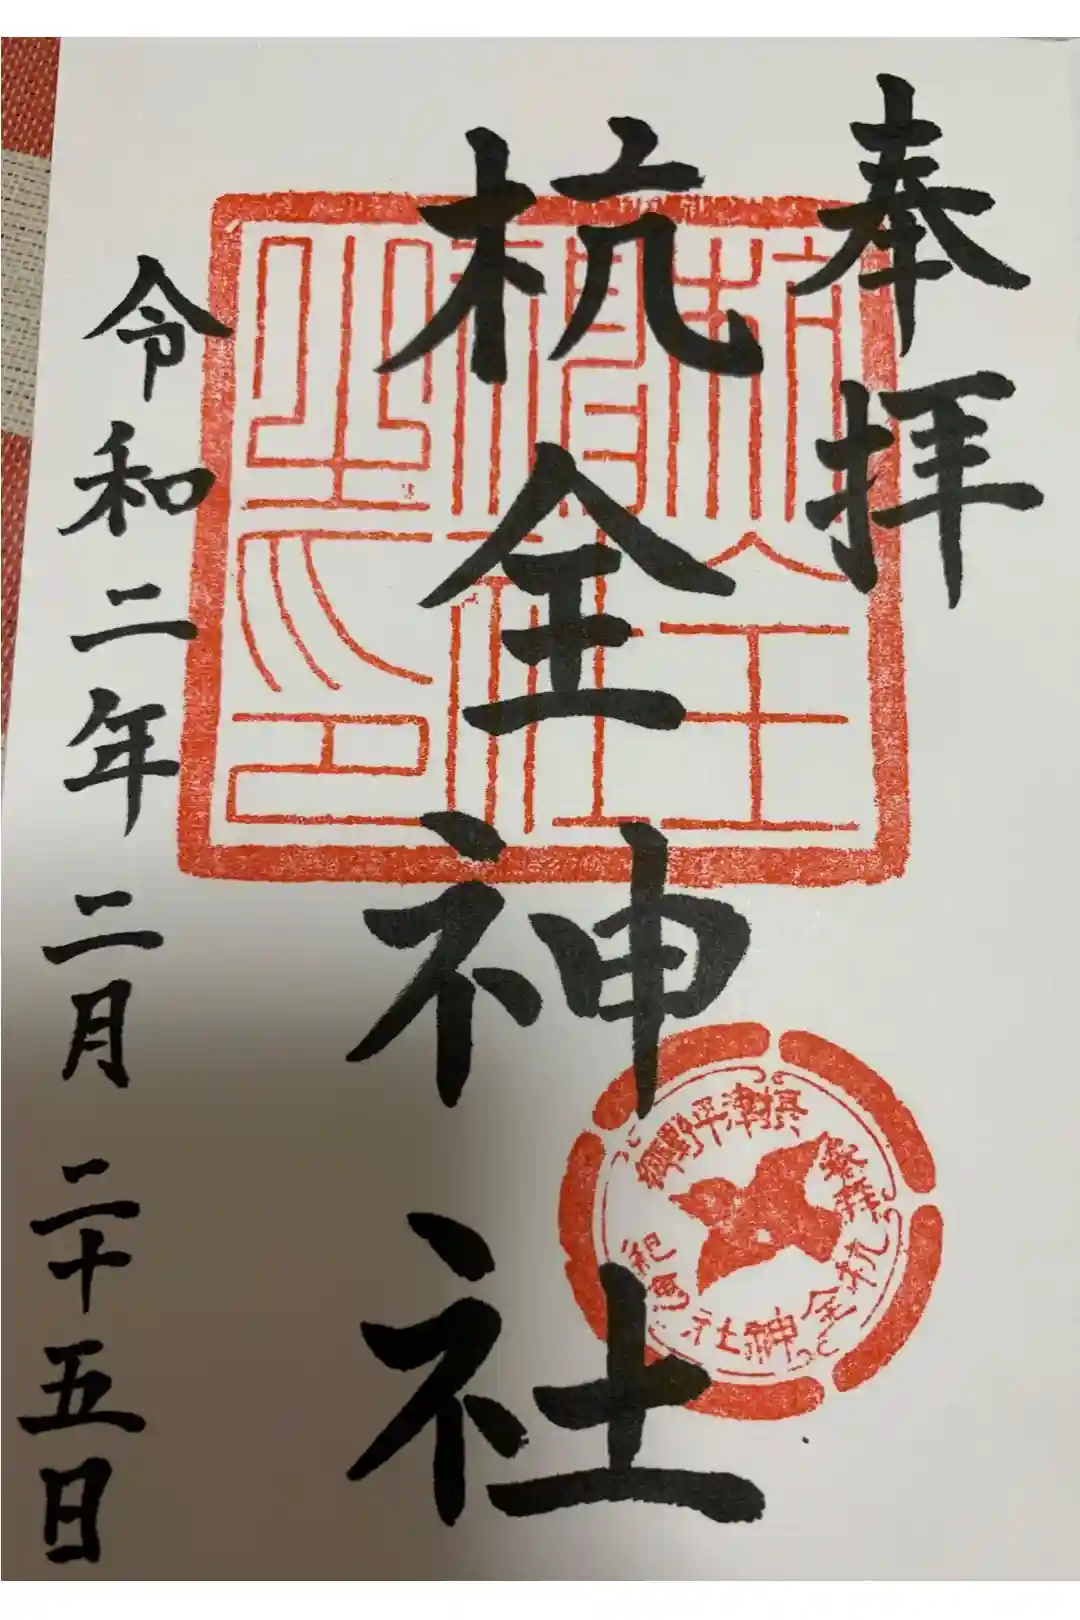 奉拝
杭全神社
令和二年二月二十五日
摂津平野郷
杭全神社